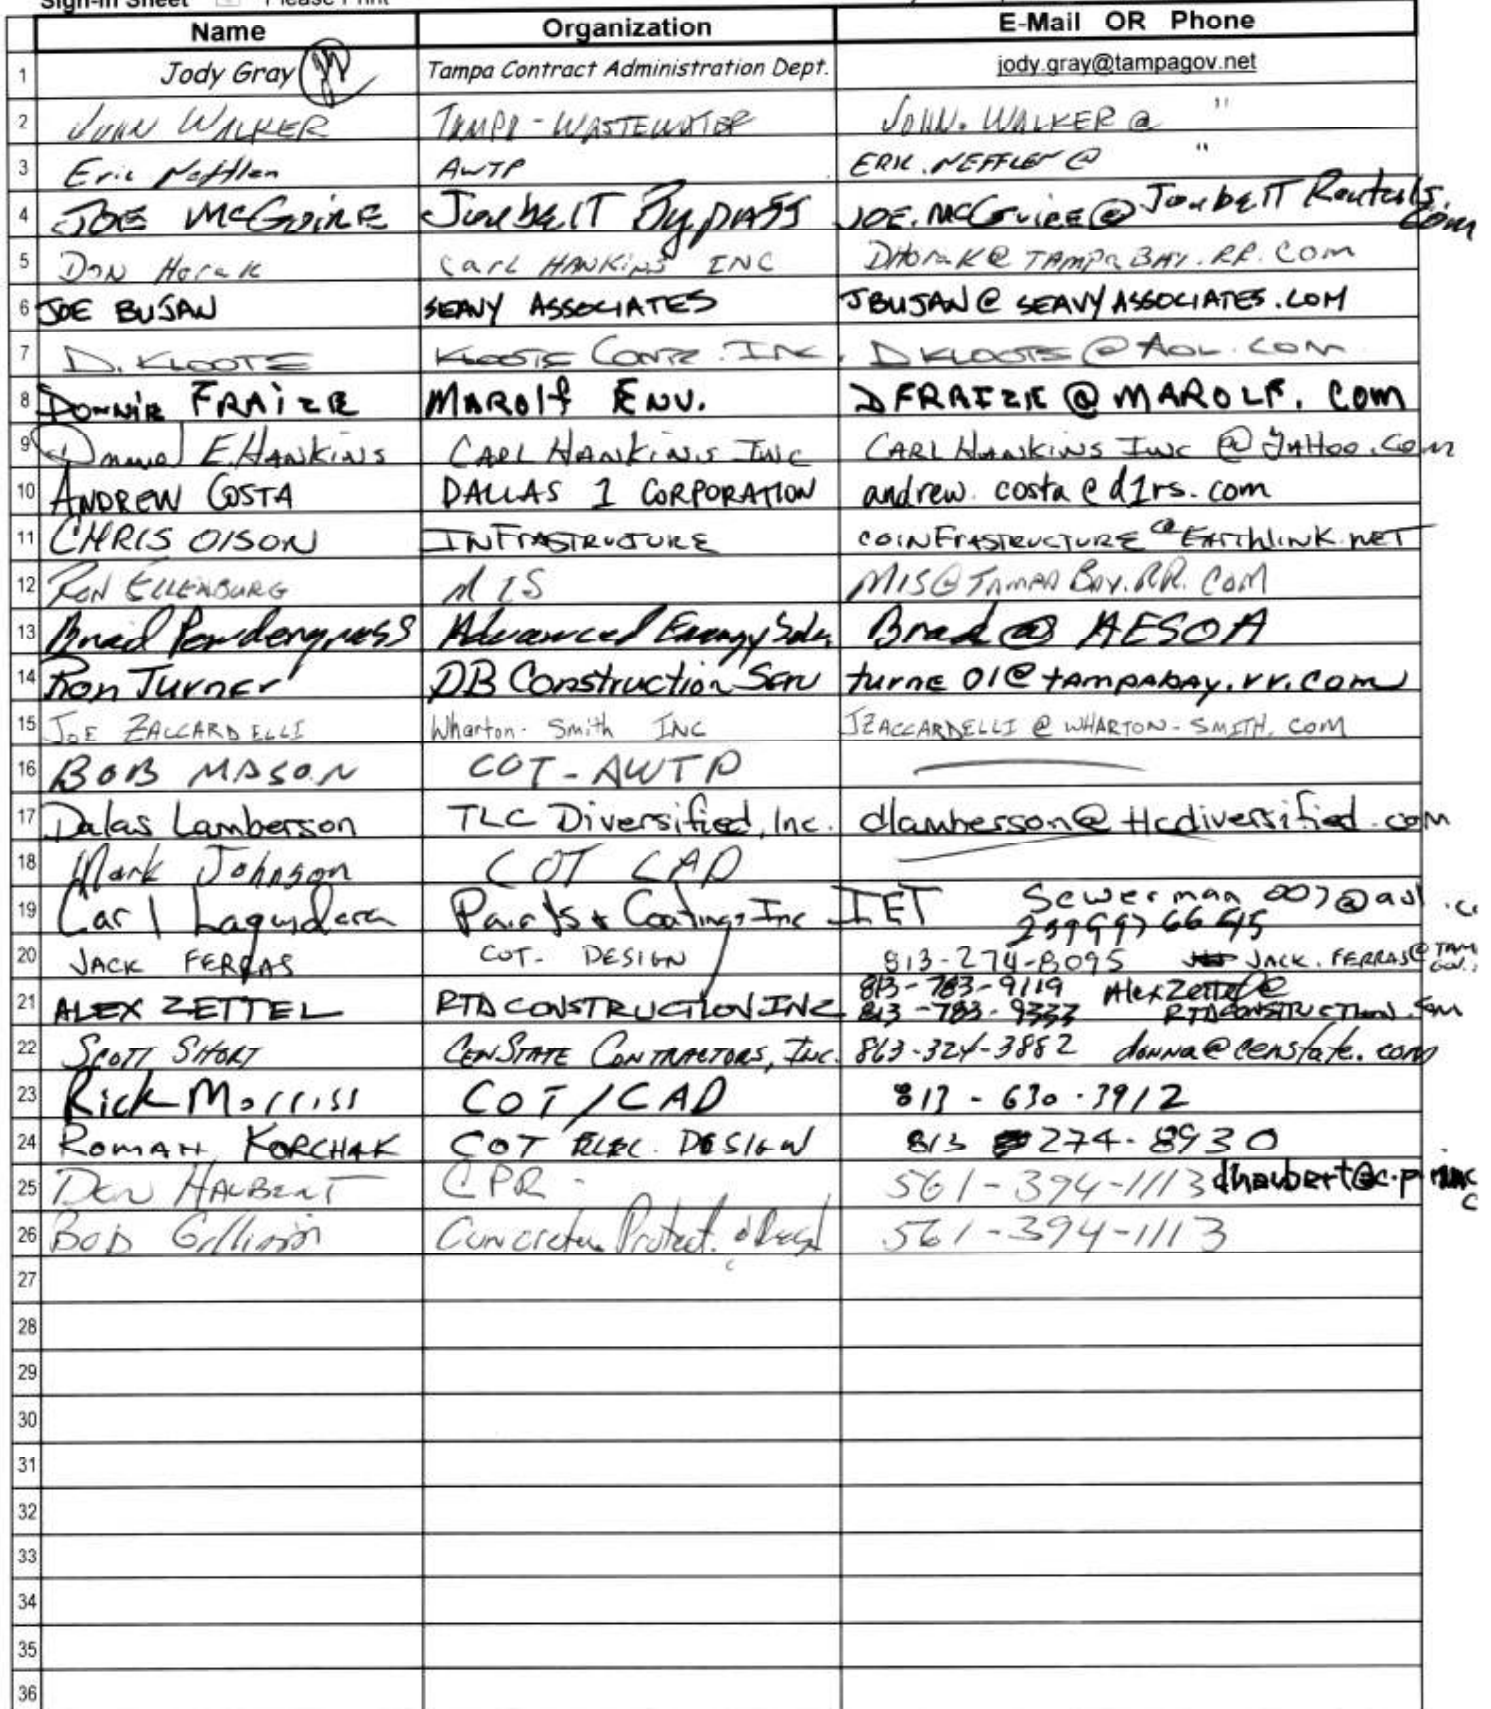 Sign-In Sheet Please Print
Name Organization E-Mail OR Phone
1 Jody Gray Tampa Contract Administration Dept. jody.gray@tampagov.net
2 JOHN WALKER TAMPA - WASTEWATER JOHN. WALKER @ "
3 Eric Neffler AWTP ERIC. NEFFLER @ "
4 JOE McGuire Joubert Bypass JOE. McGuire @ JoubeRT Rentals. com
5 DON Horak Carl HANKINS INC DHorak@ TAMPA BAY. RR. Com
6 JOE BUJAN SEAVY ASSOCIATES JBUJAN@ SEAVYASSOCIATES.COM
7 D. KLOOTE KLOOTE CONTR. INC. DKLOOTE @ AOL. COM
8 DONNIE FRAIZE MAROlf ENV. DFRAIZE @ MAROLF. Com
9 Daniel E. HANKINS CARL HANKINS INC CARL HANKINS INC @ YAHOO.Com
10 ANDREW COSTA DALLAS 1 CORPORATION andrew. costa@d1rs. com
11 CHRIS OlSON INFRASTRUCTURE COINFRASTRUCTURE @ EARTHLINK.NET
12 RON ELLENBURG MIS MIS@ TAMPA BAY.RR. COM
13 Brad Pendergrass Advanced Energy Solu. Brad @ AESOA
14 Ron Turner DB Construction Serv turne 01@tampabay.rr.com
15 JOE ZACCARDELLI Wharton- Smith INC JZACCARDELLI @ WHARTON-SMITH. COM
16 BOB MASON COT-AWTP
17 Dalas Lamberson TLC Diversified, Inc. dlamberson@tlcdiversified.com
18 Mark Johnson COT CAD
19 Carl Paints & Coatings Inc IET Sewerman 007@aol .c
20 JACK FERRAS COT- DESIGN 813-274-8095 JACK. FERRAS@TAM
GOV.
21 ALEX ZETTEL RTD CONSTRUCTION INC 813-783-9119 AlexZettel@
813-783-9333 RTDCONSTRUCTION.com
22 SCOTT SHORT CENSTATE CONTRACTORS, INC. 863-324-3882 donna@censtate.com
23 Rick Morriss COT/CAD 813-630-3912
24 ROMAN KORCHAK COT ELEC. DESIGN 813 274-8930
25 DON HAUBERT CPR- 561-394-1113 dhaubert@c-p inc
c
26 BOB Concrete Protect. 561-394-1113
27
28
29
30
31
32
33
34
35
36